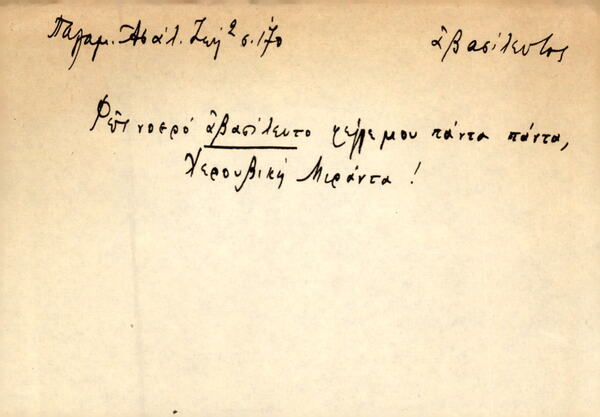 Παλαμ. Ἀσάλ. Ζωή² σ. 170 ἀβασίλευτος
νοερό ἀβασίλευτο φέγγε μου πάντα πάντα,
Χερουβική Μιράντα!